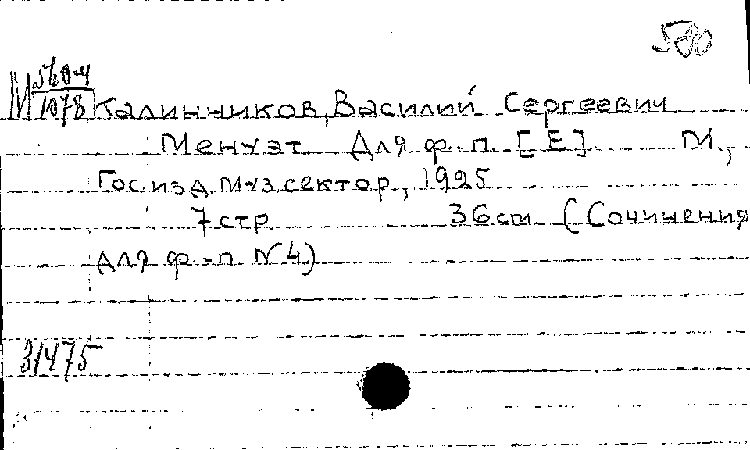 580
М 560-4
1078 Калинников, Василий Сергеевич
Менуэт Для ф. п. [E] М.,
Госиздмузсектор, 1925
7 стр 36 см (Сочинения
для ф.-п. N4)
31475